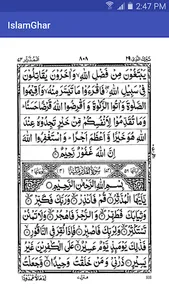 2:47 PM
IslamGhar
٨٠٨
يَبْتَغُوْنَ مِنْ فَضْلِ اللّٰهِ وَاٰخَرُوْنَ يُقَاتِلُوْنَ
فِيْ سَبِيْلِ اللّٰهِ فَاقْرَءُوْا مَا تَيَسَّرَ مِنْهُ وَاَقِيْمُوا
الصَّلٰوةَ وَاٰتُوا الزَّكٰوةَ وَاَقْرِضُوا اللّٰهَ قَرْضًا حَسَنًا
وَمَا تُقَدِّمُوْا لِاَنْفُسِكُمْ مِّنْ خَيْرٍ تَجِدُوْهُ عِنْدَ اللّٰهِ
هُوَ خَيْرًا وَّاَعْظَمَ اَجْرًا وَاسْتَغْفِرُوا اللّٰهَ
اِنَّ اللّٰهَ غَفُوْرٌ رَّحِيْمٌ
بِسْمِ اللّٰهِ الرَّحْمٰنِ الرَّحِيْمِ
يٰٓاَيُّهَا الْمُدَّثِّرُ قُمْ فَاَنْذِرْ وَرَبَّكَ فَكَبِّرْ
وَثِيَابَكَ فَطَهِّرْ وَالرُّجْزَ فَاهْجُرْ وَلَا تَمْنُنْ
تَسْتَكْثِرُ وَلِرَبِّكَ فَاصْبِرْ فَاِذَا نُقِرَ فِي
النَّاقُوْرِ فَذٰلِكَ يَوْمَئِذٍ يَّوْمٌ عَسِيْرٌ عَلَى الْكٰفِرِيْنَ غَيْرُ
يَسِيْرٍ ذَرْنِيْ وَمَنْ خَلَقْتُ وَحِيْدًا وَّجَعَلْتُ لَهٗ